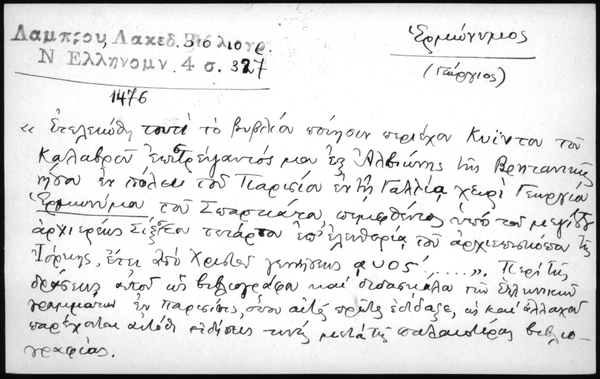 Λαμπρου, Λακεδ. Βιβλιογρ.
Ν Ελληνομν. 4 σ. 327
Ἑρμώνυμος
(Γεώργιος)
1476
« Ἐτελειώθη τουτὶ τὸ βυβλίον ποίησιν περιέχον Κυΐντου τοῦ
Καλαβροῦ ἐπιστρέψαντός μου ἐξ Ἀλβιώνης τῆς Βρετανικῆς
νήσου ἐν πόλει τοῦ Παρισίου ἐν τῇ Γαλλίᾳ, χειρὶ Γεωργίου
Ἑρμωνύμου τοῦ Σπαρτιάτου, πεμφθέντος ὑπὸ τοῦ μεγίστου
ἀρχιερέως Σίξτου τετάρτου ἐπ' ἐλευθερίᾳ τοῦ ἀρχιεπισκόπου τῆς
Ἰόρκης, ἔτει ἀπὸ Χριστοῦ γεννήσεως αυος΄ ..... ». Περὶ τῆς
δράσεως αὐτοῦ ὡς βιβλιογράφου καὶ διδασκάλου τῶν Ἑλληνικῶν
γραμμάτων ἐν Παρισίοις, ὅπου αὐτὸς πρῶτος ἐδίδαξε, ὡς καὶ ἀλλαχοῦ
παρέχονται αὐτόθι εἰδήσεις τινὲς μετὰ τῆς παλαιοτέρας βιβλιο-
γραφίας.